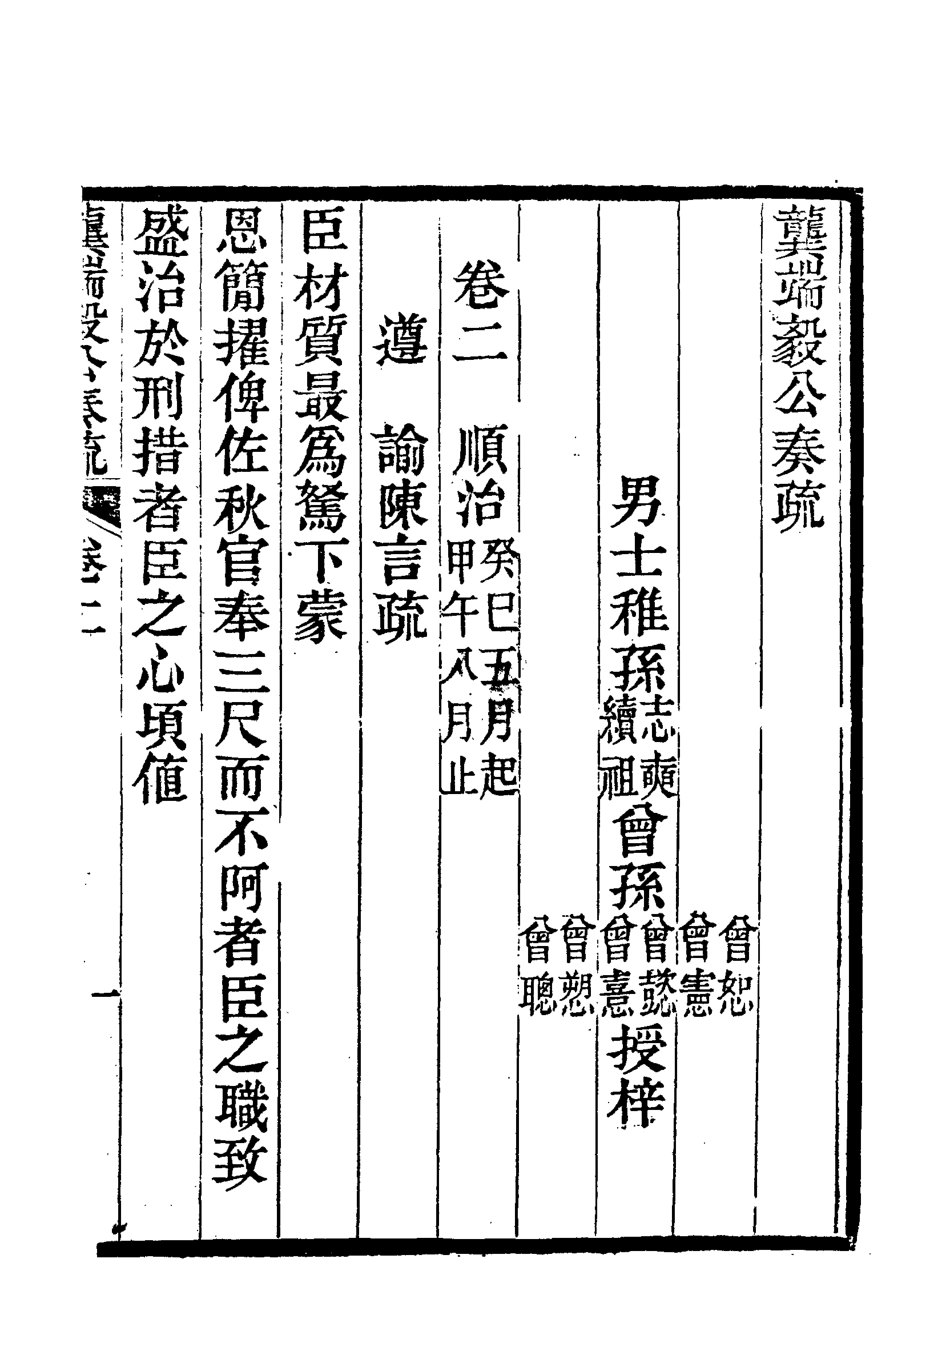 龔端毅公奏疏
曾恕
曾憲
男士稚孫志奭續祖曾孫曾懿曾憙授梓
曾愬
曾聰
卷二　順治癸巳五月起甲午八月止
遵　諭陳言疏
臣材質最爲駑下蒙
恩簡擢俾佐秋官奉三尺而不阿者臣之職致
盛治於刑措者臣之心頃値
龔端毅公奏疏　卷二　一